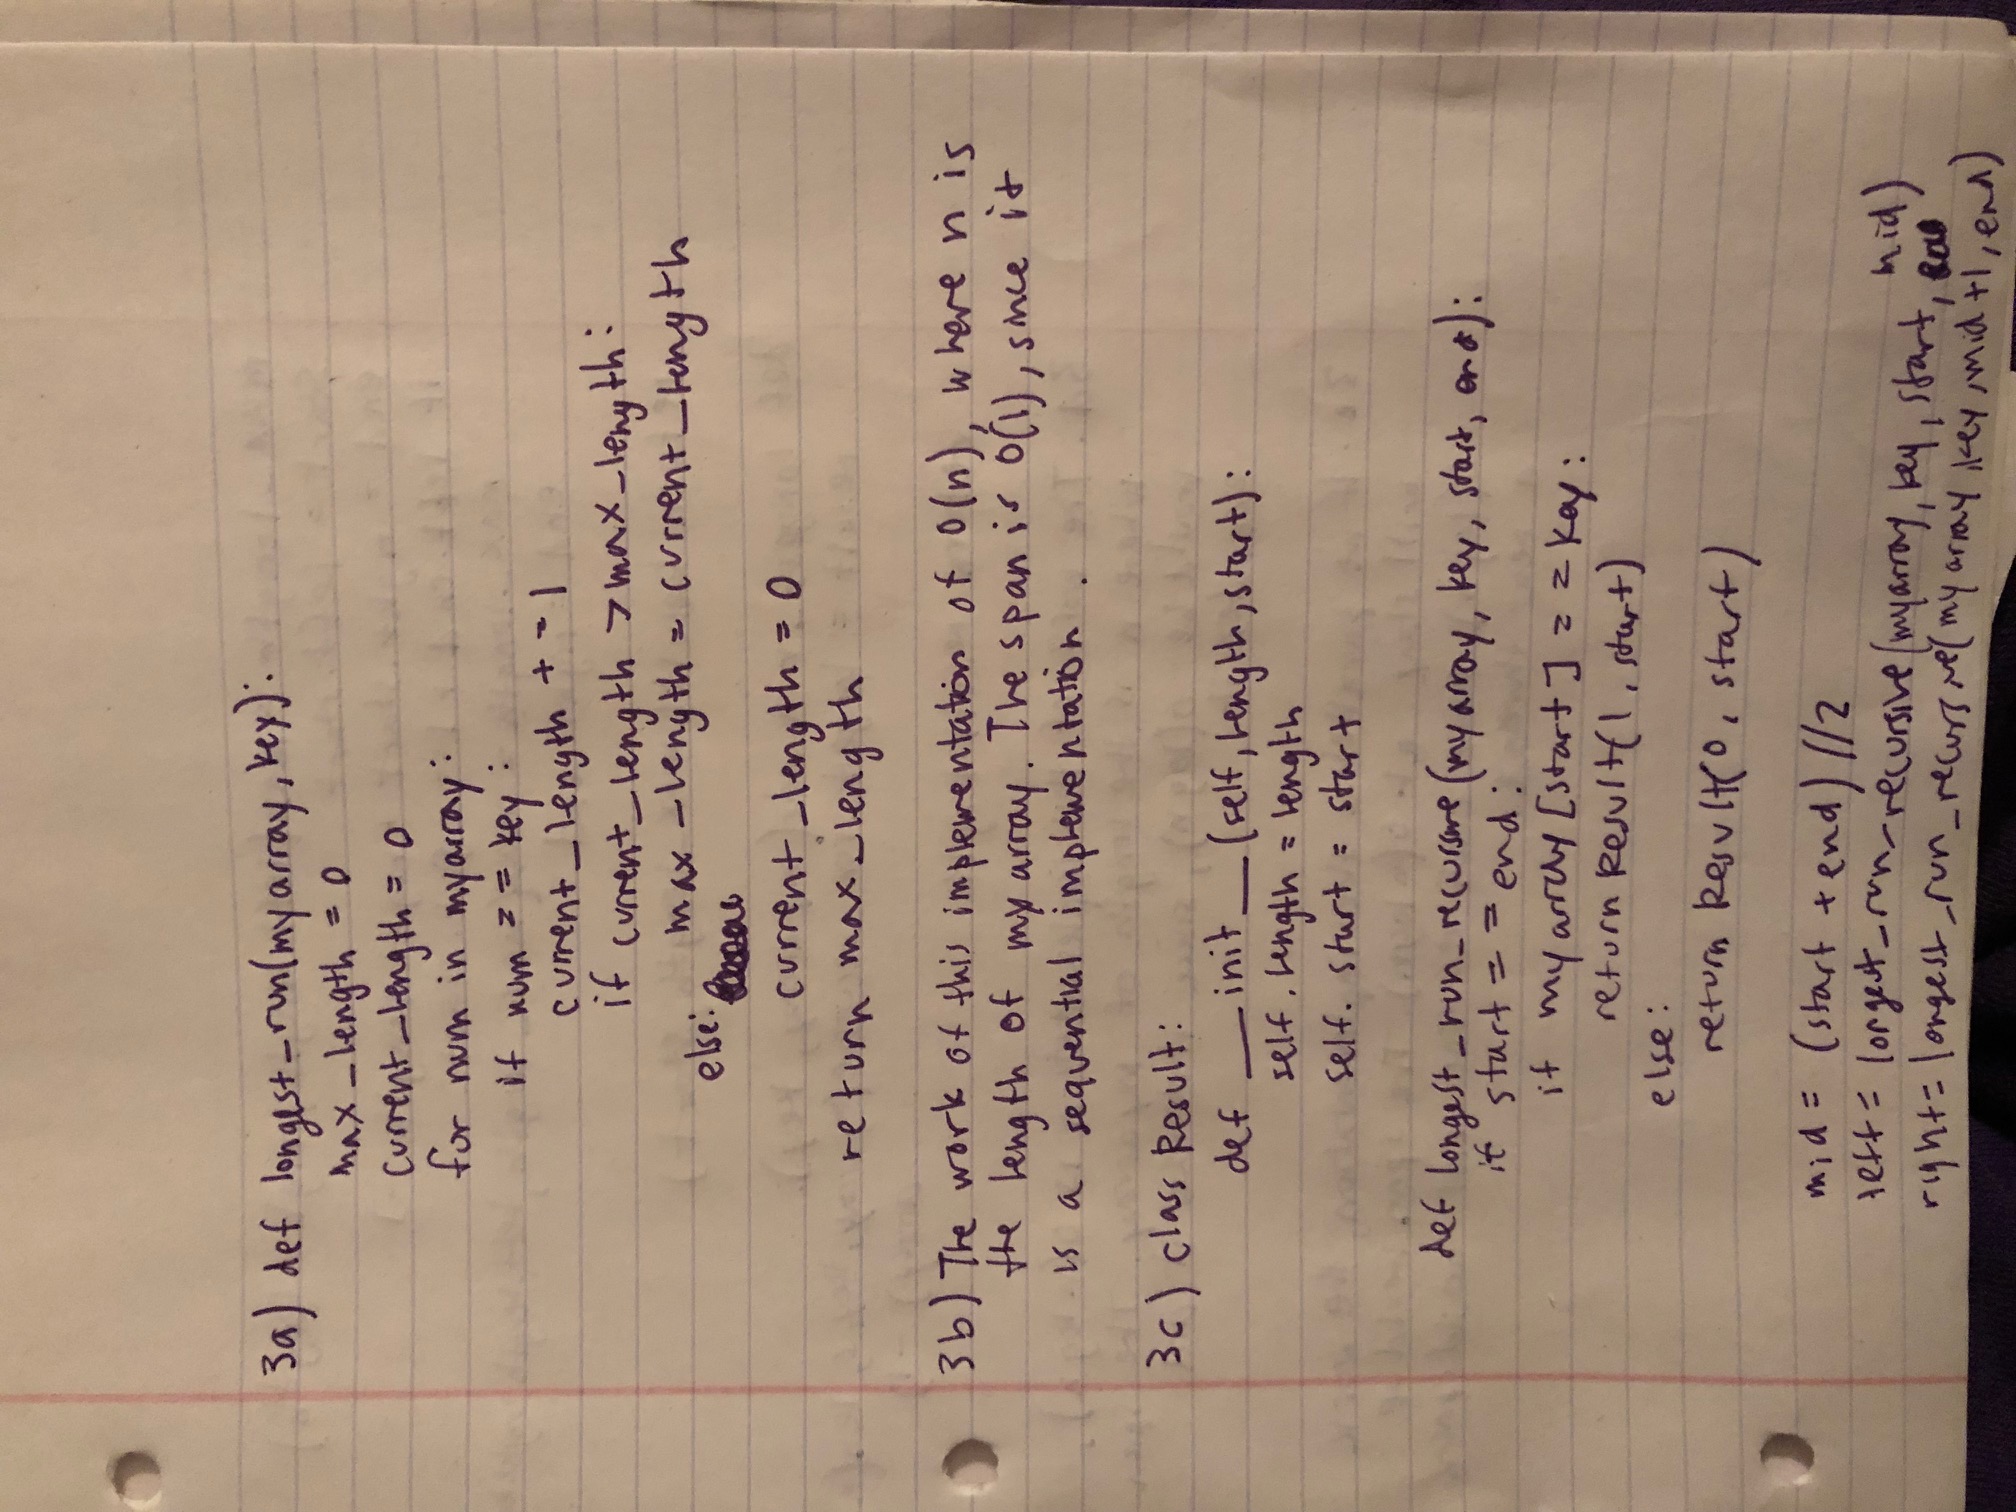 3a) def longest_run(myarray, key):
max_length = 0
current_length = 0
for num in myarray:
if num == key:
current_length += 1
if current_length > max_length:
max_length = current_length
else:
current_length = 0
return max_length
3b) The work of this implementation of O(n), where n is
the length of myarray. The span is O(1), since it
is a sequential implementation.
3c) class Result:
def __init__(self, length, start):
self.length = length
self.start = start
def longest_run_recursive(myarray, key, start, end):
if start == end:
if myarray[start] == key:
return Result(1, start)
else:
return Result(0, start)
mid = (start + end)//2
left = longest_run_recursive(myarray, key, start, mid)
right = longest_run_recursive(myarray, key, mid+1, end)